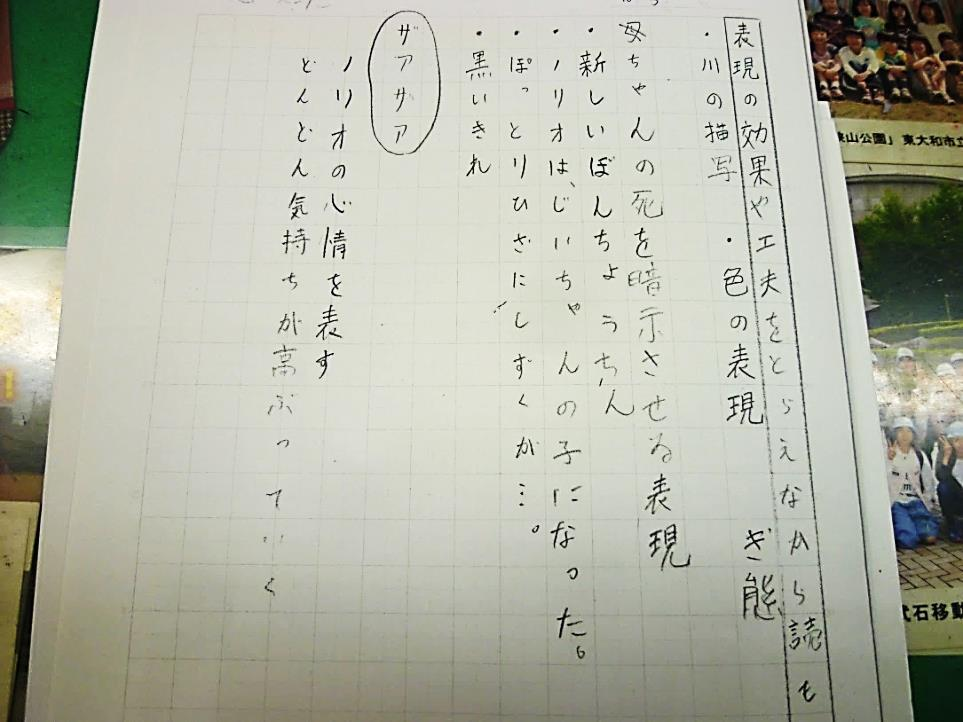 表現の効果や工夫をとらえながら読も
・川の描写 ・色の表現 ぎ態
母ちゃんの死を暗示させる表現
・新しいぼんちょうちん
・ノリオは、じいちゃんの子になった。
・ぽっとりひざにしずくが…。
・黒いきれ
ザアザア
ノリオの心情を表す
どんどん気持ちが高ぶっていく
山公園」東大和市立
式石移動